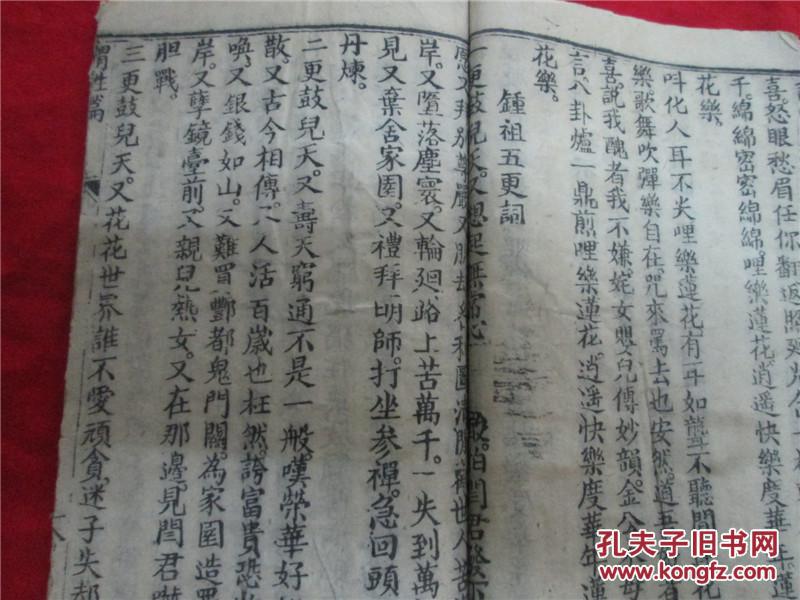 喜怒眼愁眉任你翻返照
千綿綿密密綿綿哩樂蓮花逍遙快樂度華年蓮
花樂
叫化人耳不尖哩樂蓮花有耳如聾不聽間
樂歌舞吹彈樂自在咒來罵去也安然道吾
喜說我醜者我不嫌姹女嬰兒傳妙韻金公
言八卦爐一鼎煎哩樂蓮花逍遙快樂度華年蓮
花樂
鍾祖五更詞
一更鼓兒天又想起無常心
岸又墮落塵寰又輪廻路上苦萬千一失到萬
見又棄舍家園又禮拜明師打坐參禪急回頭
丹煉
二更鼓兒天又壽夭窮通不是一般嘆榮華好
散又古今相傳又人活百歲也枉然誇富貴恐
喚又銀錢如山又難買酆都鬼門關為家園造罪
岸又孽鏡臺前又親兒熱女又在那邊見閆君
胆戰
三更鼓兒天又花花世界誰不愛頑貪迷子失却
性篇
孔夫子旧书网
www.kongfz.com